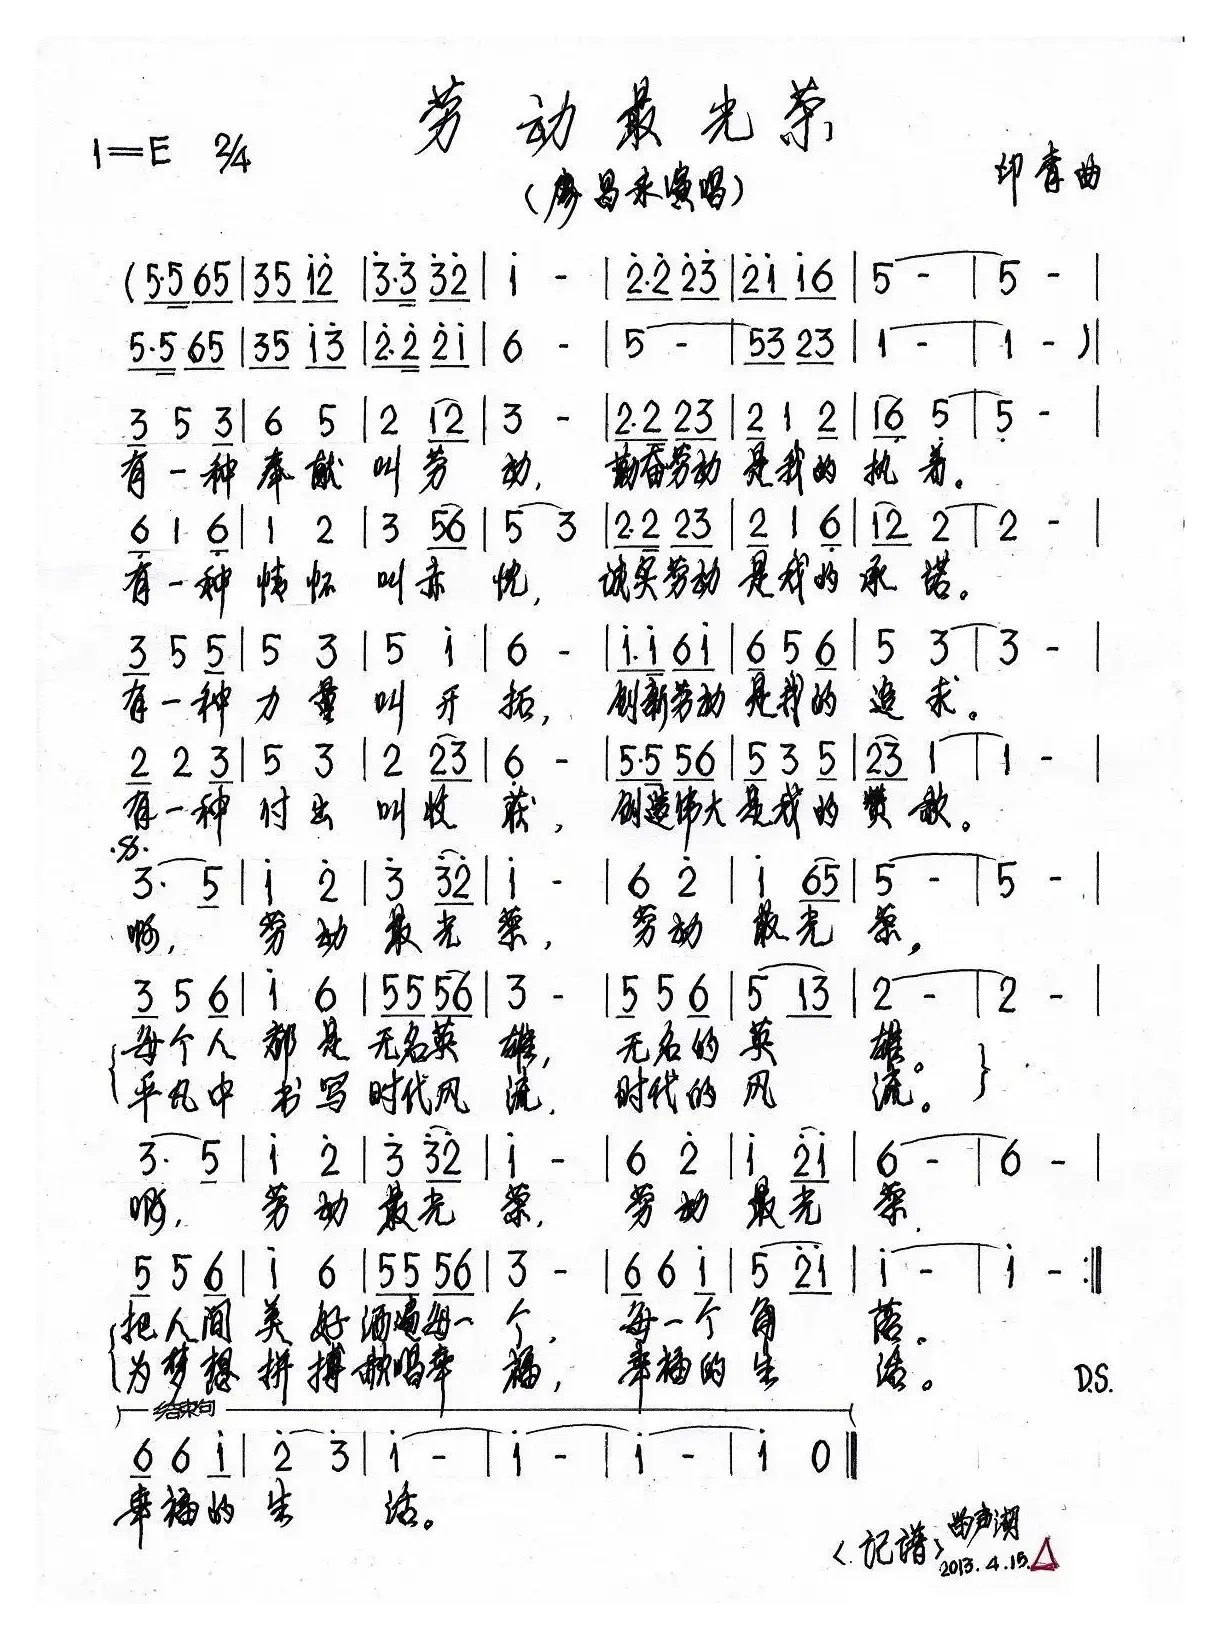 劳动最光荣
1=E 2/4
(廖昌永演唱)
印青曲
(5·5 65|35 1̇2̇|3̇·3̇ 3̇2̇|1̇ -|2̇·2̇ 2̇3̇|2̇1̇ 1̇6|5 -|5 -|
5·5 65|35 1̇3̇|2̇·2̇ 2̇1̇|6 -|5 -|53 23|1 -|1 -)|
3 5 3|6 5|2 12|3 -|2·2 23|2 1 2|16̣ 5̣|5̣ -|
有一种奉献叫劳动, 勤奋劳动是我的执着。
6̣ 1 6̣|1 2|3 56|5 3|2·2 23|2 1 6̣|12 2|2 -|
有一种情怀叫赤忱, 诚实劳动是我的承诺。
3 5 5|5 3|5 1̇|6 -|1̇·1̇ 61̇|6 5 6|5 3|3 -|
有一种力量叫开拓, 创新劳动是我的追求。
2 2 3|5 3|2 23|6̣ -|5·5 56|5 3 5|23 1|1 -|
有一种付出叫收获, 创造伟大是我的赞歌。
3· 5|1̇ 2̇|3̇ 3̇2̇|1̇ -|6 2̇|1̇ 65|5 -|5 -|
啊, 劳动最光荣, 劳动最光荣,
3 5 6|1̇ 6|55 56|3 -|5 5 6|5 13|2 -|2 -|
每个人都是无名英雄, 无名的英雄。
平凡中书写时代风流, 时代的风流。
3· 5|1̇ 2̇|3̇ 3̇2̇|1̇ -|6 2̇|1̇ 2̇1̇|6 -|6 -|
啊, 劳动最光荣, 劳动最光荣,
5 5 6|1̇ 6|55 56|3 -|6 6 1̇|5 2̇1̇|1̇ -|1̇ -:‖
把人间美好洒遍每一个, 每一个角落。
为梦想拼搏歌唱幸福, 幸福的生活。 D.S.
结束句
6 6 1̇|2̇ 3̇|1̇ -|1̇ -|1̇ -|1̇ 0‖
幸福的生活。
(记谱)
2013.4.15.